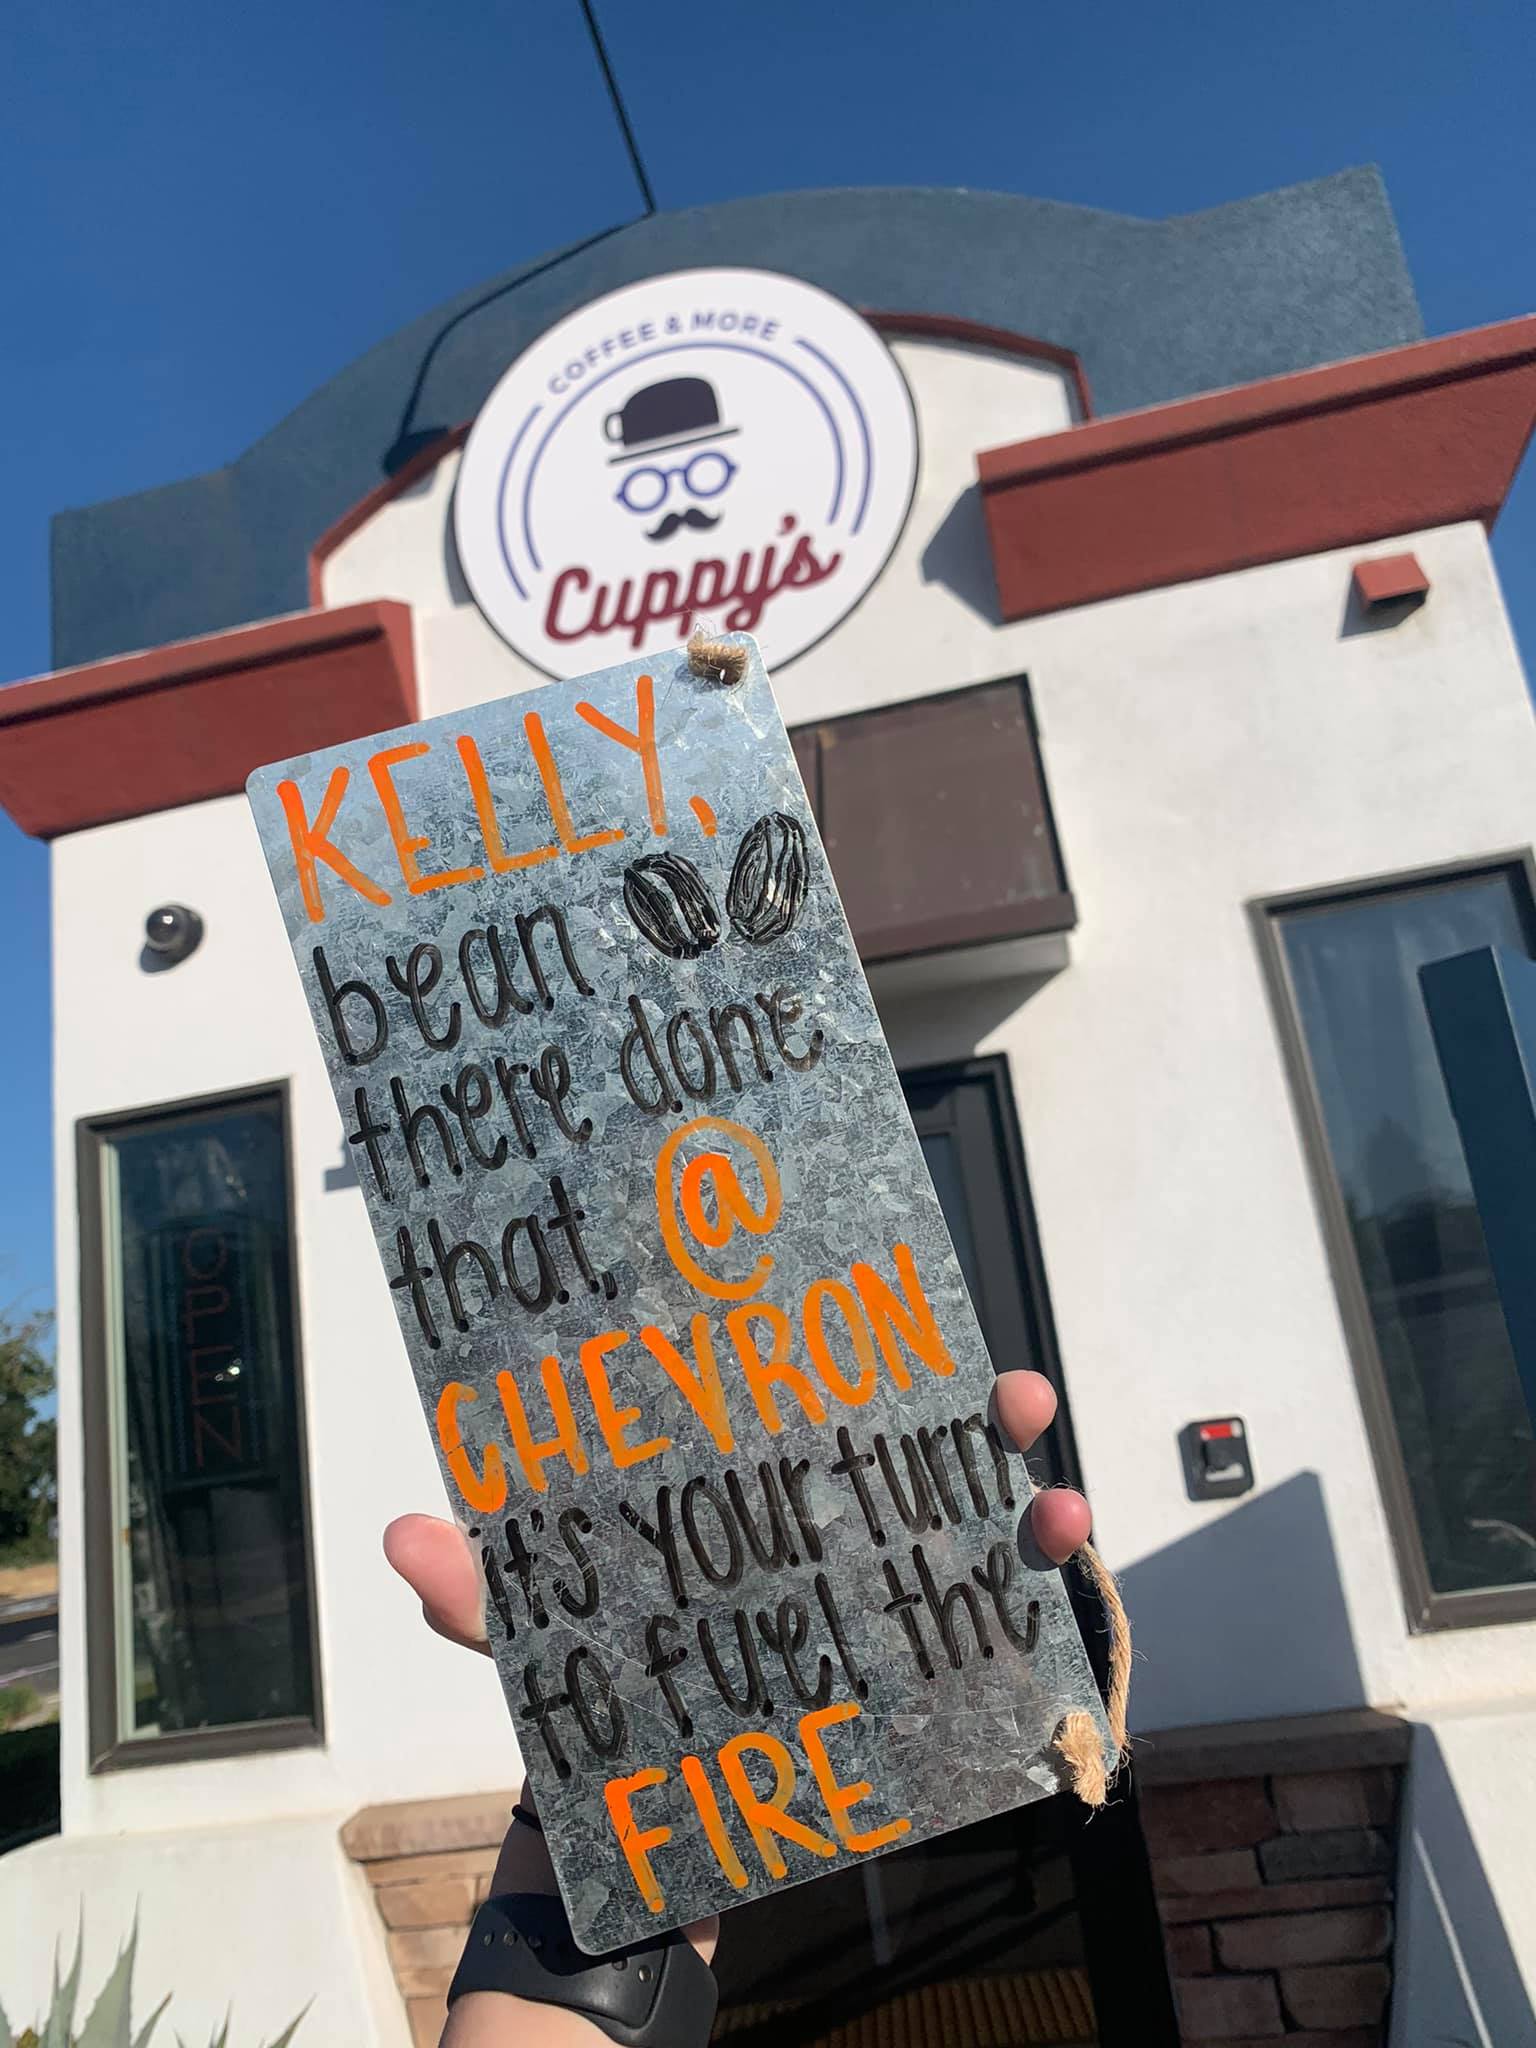 COFFEE & MORE
Cuppy's
KELLY,
bean
there done
that, @
CHEVRON
it's your turn
to fuel the
FIRE
OPEN